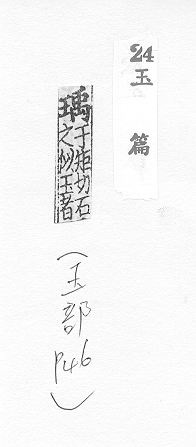 24
玉篇
瑀
于矩切石
之似玉者
(玉部
P46)